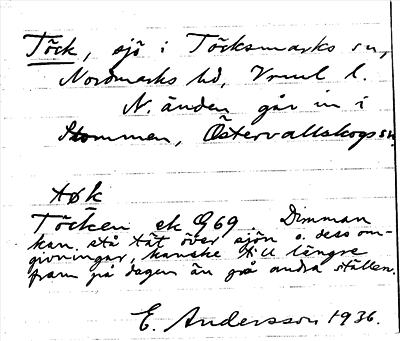 Töck, sjö i Töcksmarks sn,
Nordmarks hd, Vrml l.
N. änden går in i
Stommen, Östervallskogs sn.
tøk
Töcken ek 969 Dimman
kan stå tät över sjön o. dess om-
givningar, kanske till längre
fram på dagen än på andra ställen.
E. Andersson 1936.